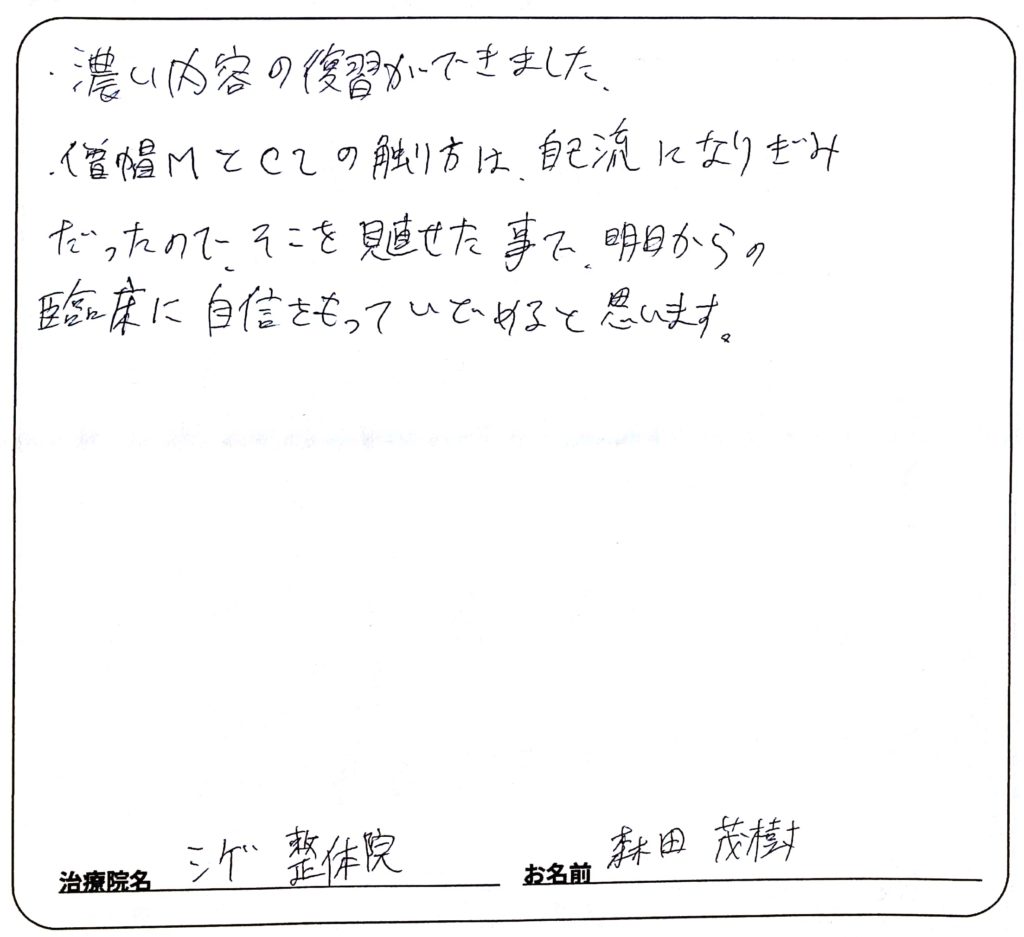 ・濃い内容の復習ができました、
・僧帽MとC2の触り方は、自己流になりぎみ
だったので、そこを見直せた事で、明日からの
臨床に自信をもっていどめると思います。
治療院名 シゲ 整体院 お名前 森田 茂樹